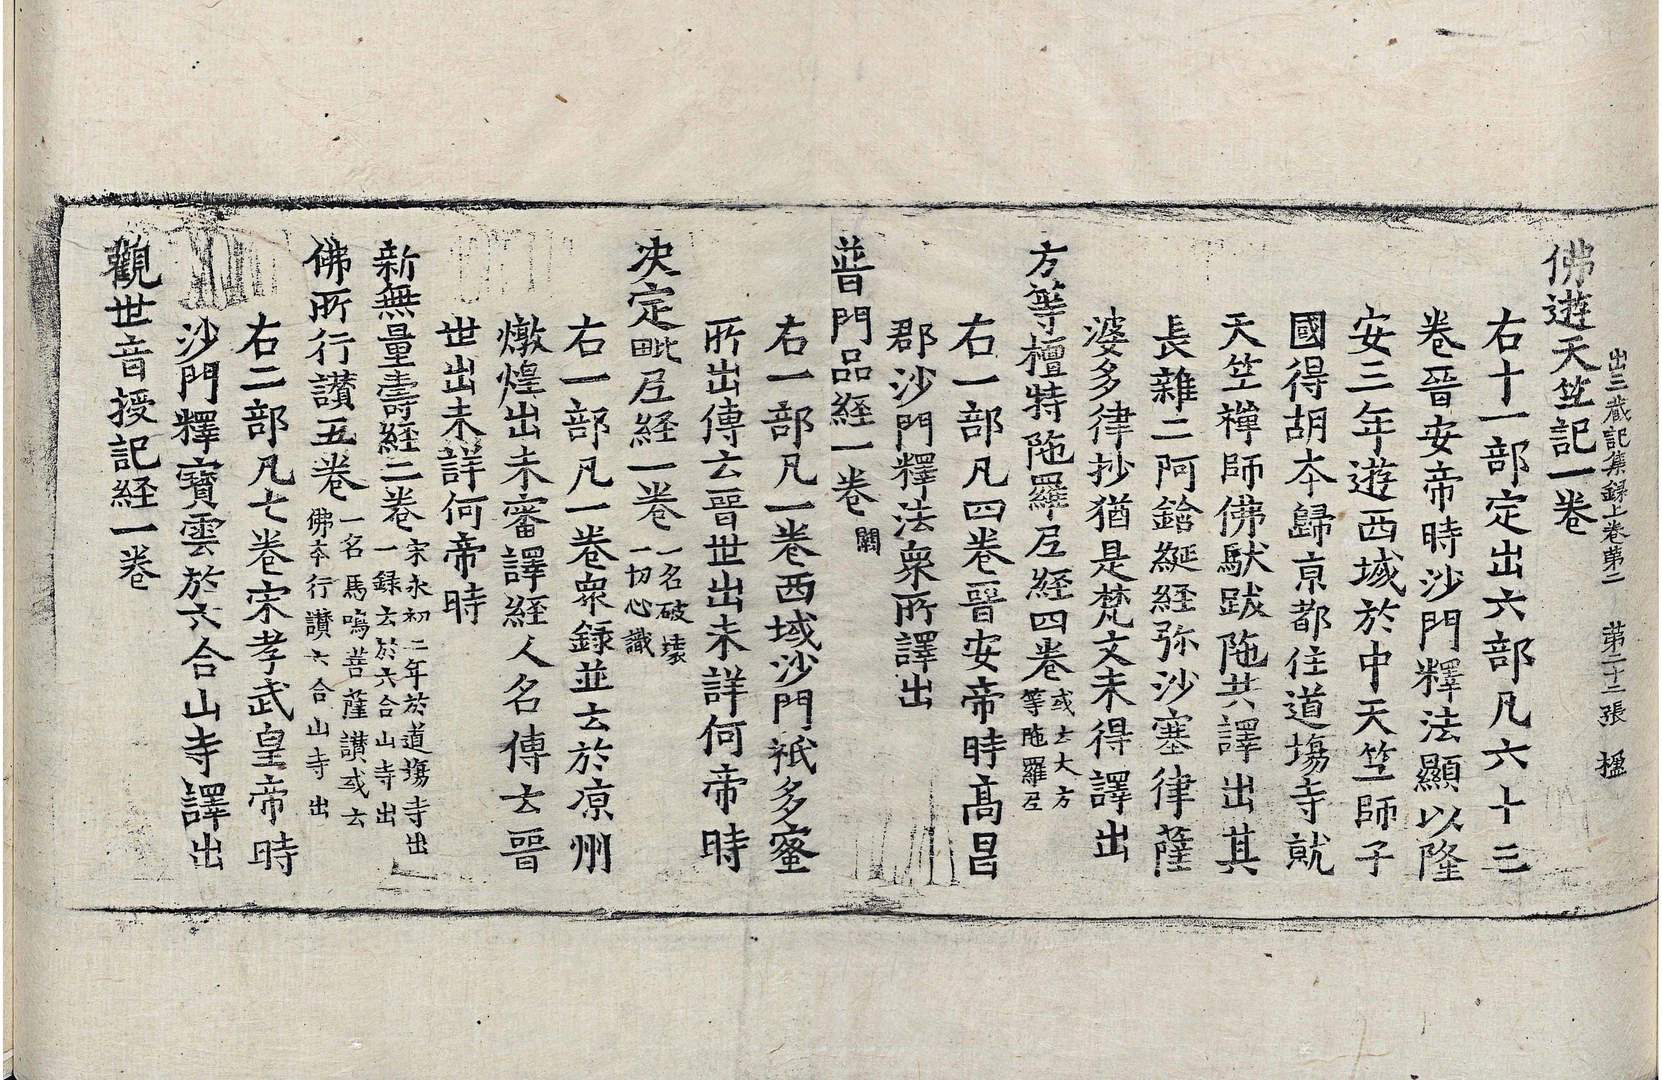 出三藏記集録上卷第二　第二十二張　楹
佛遊天竺記一卷
右十一部定出六部凡六十三
卷晉安帝時沙門釋法顯以隆
安三年遊西域於中天竺師子
國得胡本歸京都住道塲寺就
天竺禪師佛馱跋陁共譯出其
長雜二阿鋡綖経弥沙塞律薩
婆多律抄猶是梵文未得譯出
方等檀特陁羅尼経四卷或云大方等陁羅尼
右一部凡四卷晉安帝時髙昌
郡沙門釋法衆所譯出
普門品経一卷闕
右一部凡一卷西域沙門祇多蜜
所出傳云晉世出未詳何帝時
决定毗尼経一卷一名破壊一切心識
右一部凡一卷衆録並云於凉州
燉煌出未審譯経人名傳云晉
世出未詳何帝時
新無量壽経二卷宋永初二年於道塲寺出一録云於六合山寺出
佛所行讃五卷一名馬鳴菩薩讃或云佛本行讃六合山寺出
右二部凡七卷宋孝武皇帝時
沙門釋寶雲於六合山寺譯出
觀世音授記経一卷